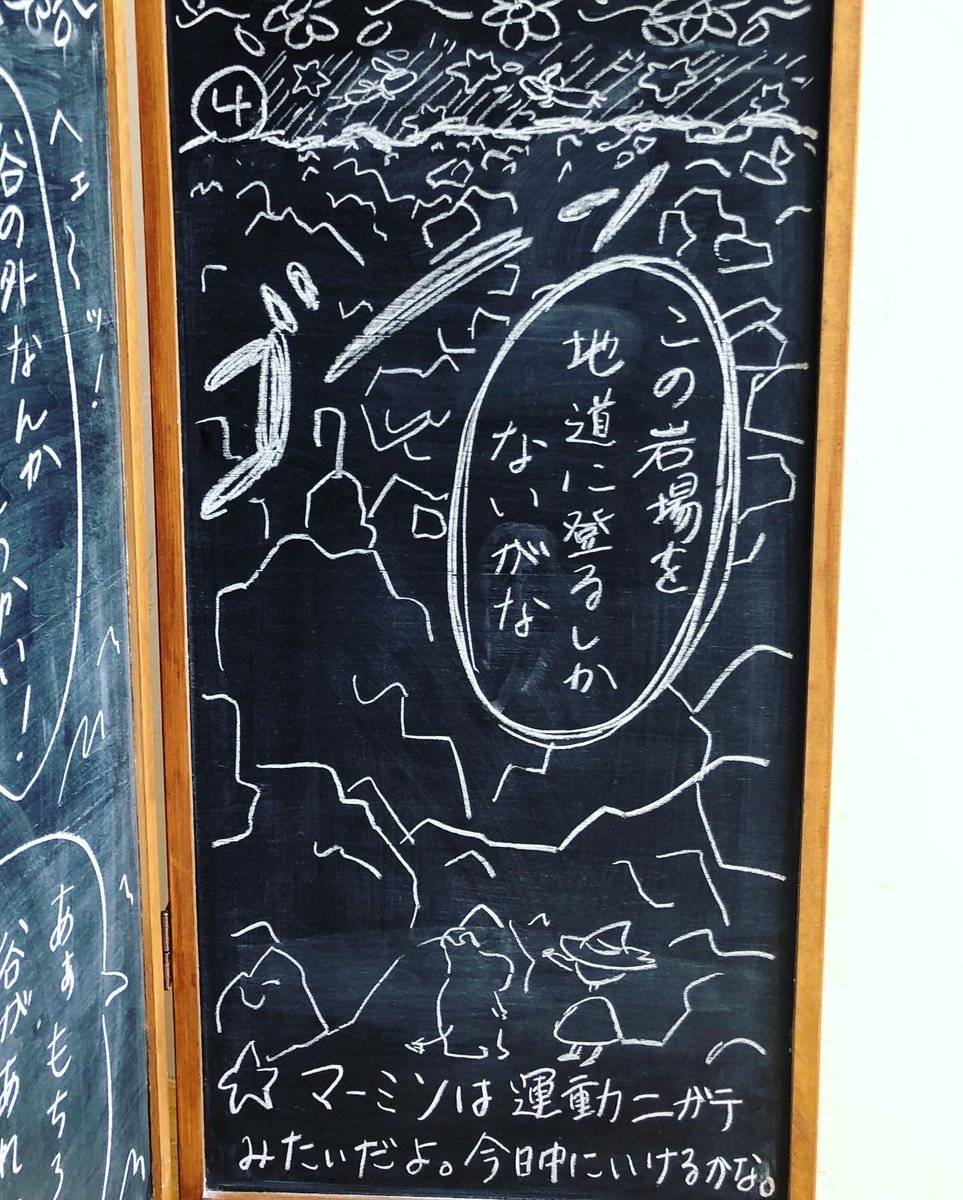 ヘェ〜ッ!
谷の外なんか
もちろ
谷があれ
④
ゴーン
この岩場を
地道に登るしか
ないがな
☆マーミンは運動ニガテ
みたいだよ。今日中にいけるかな。